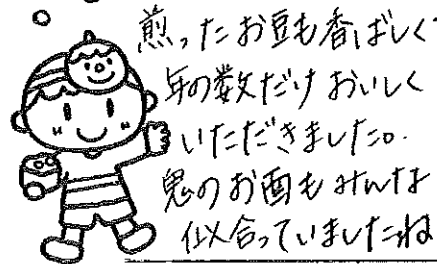 煎ったお豆も香ばしく
年の数だけおいしく
いただきました。
鬼のお面もみんな
似合っていましたね